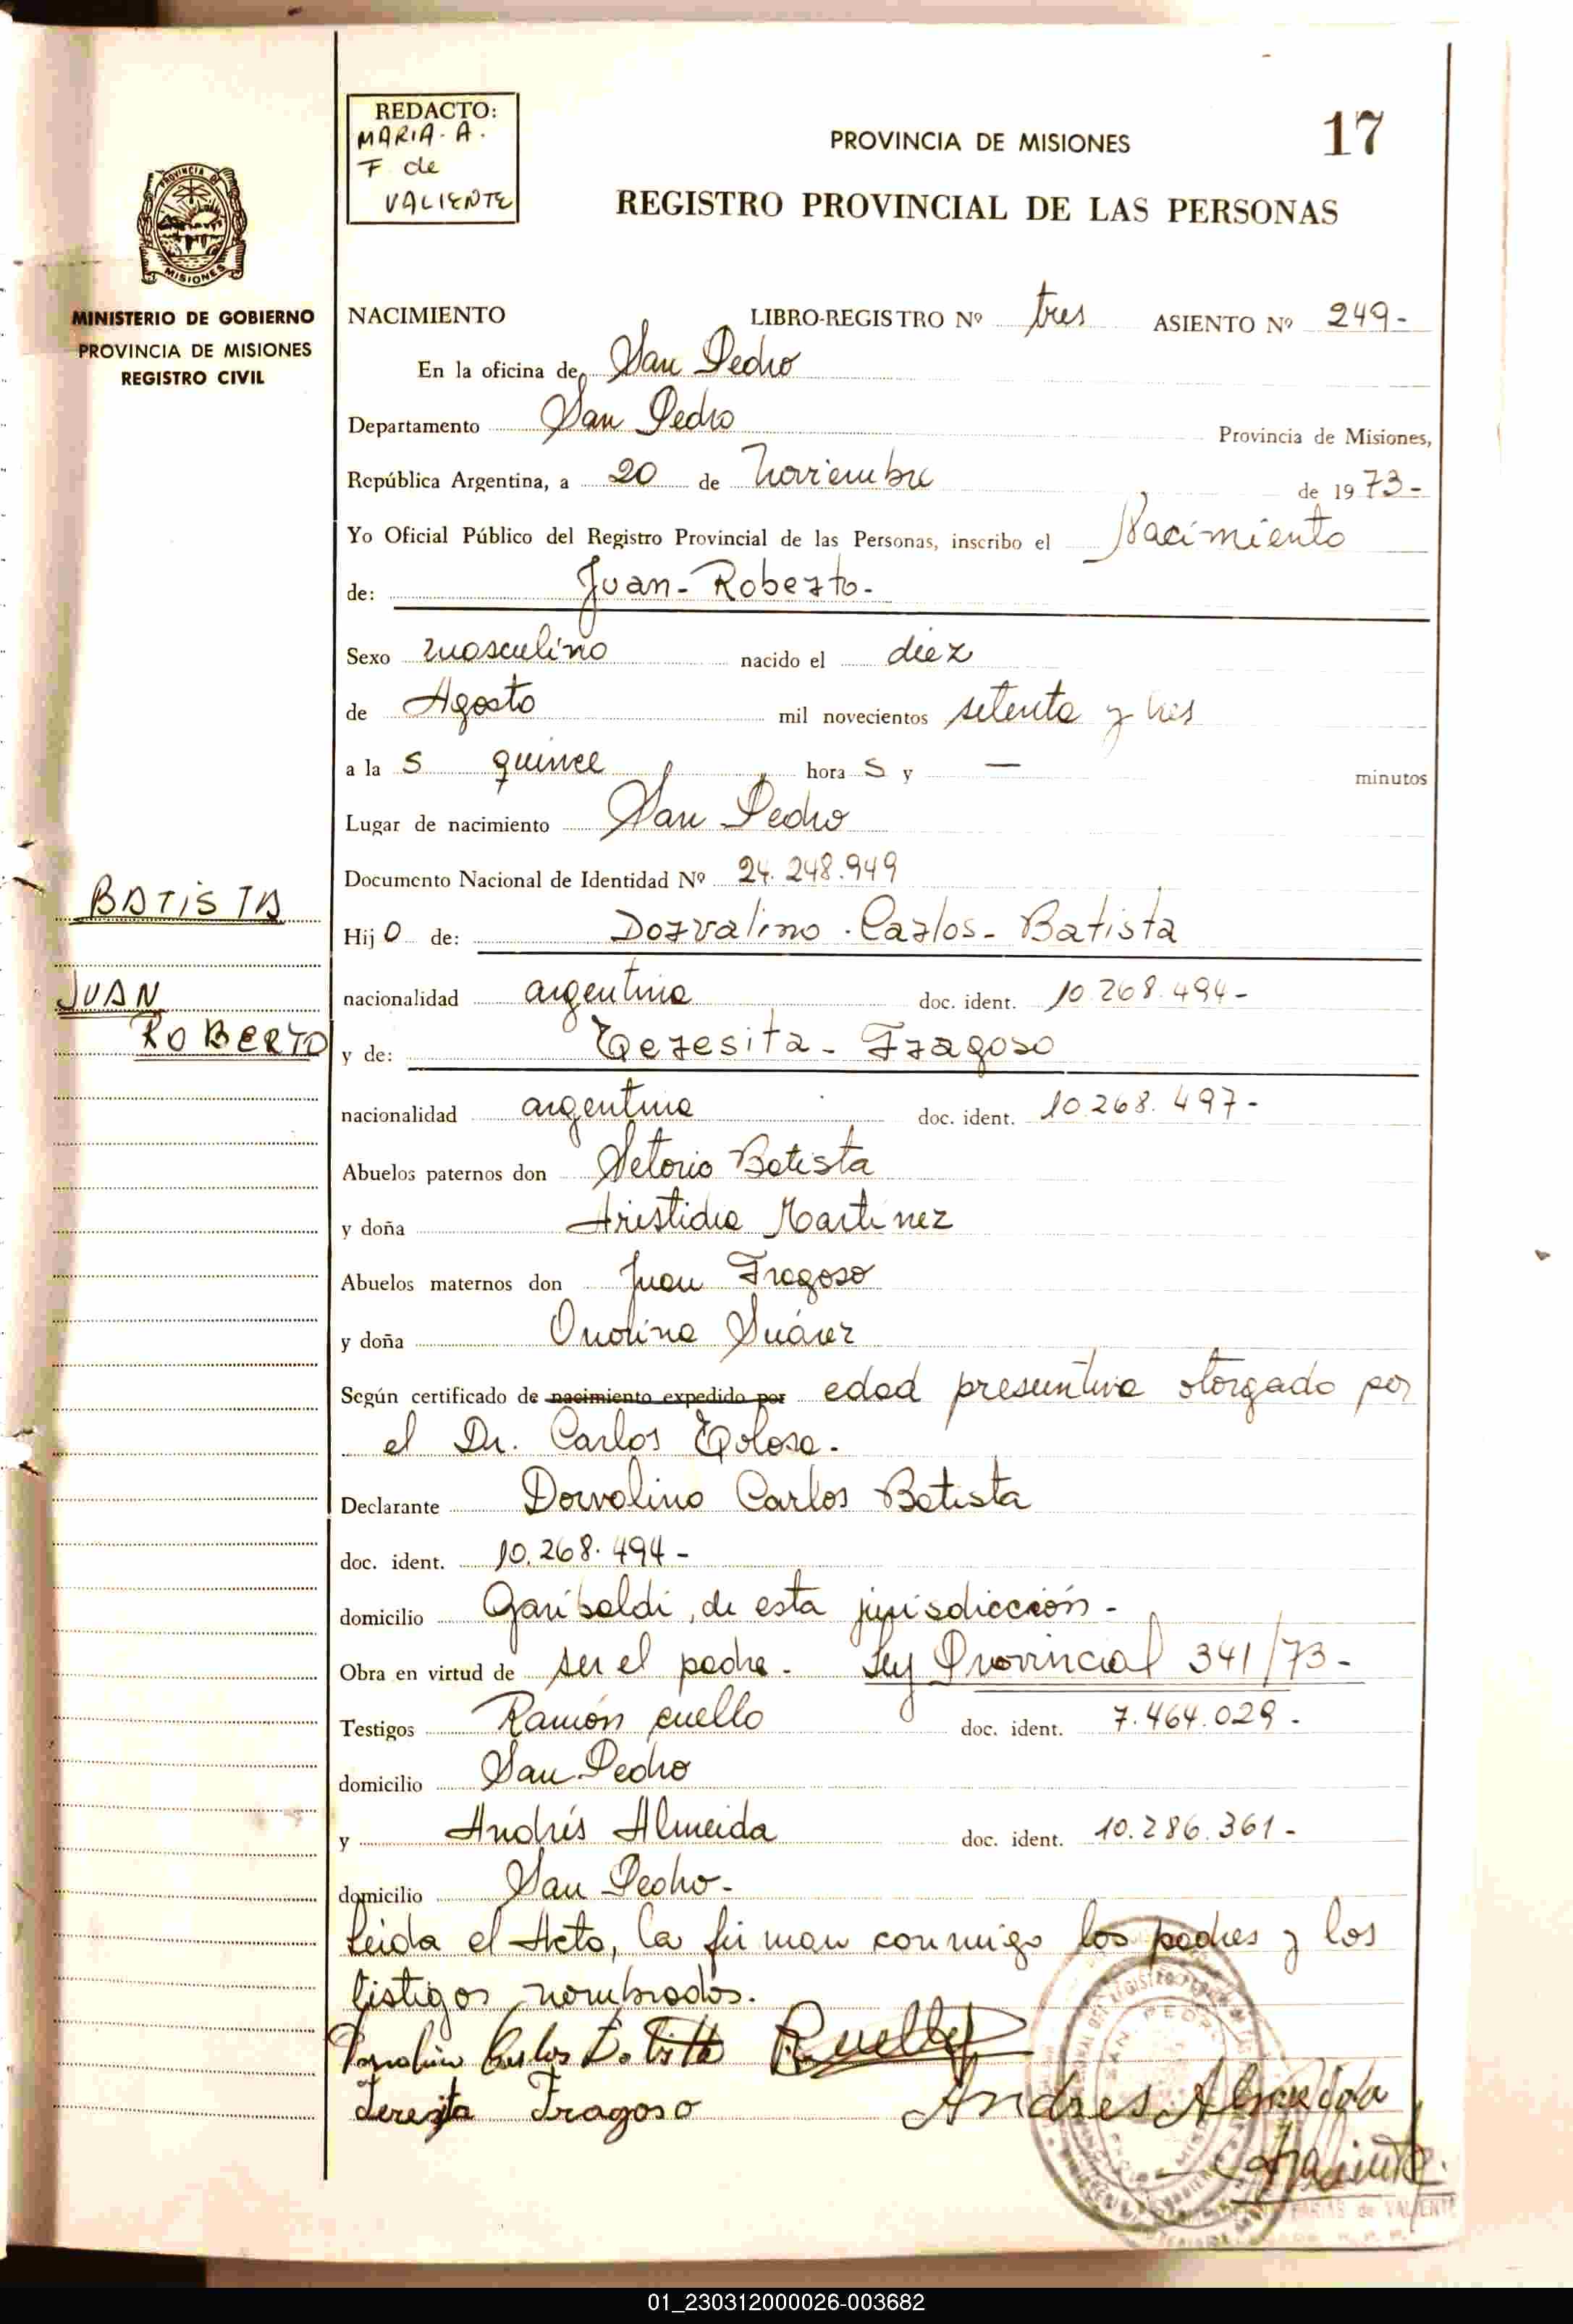 REDACTO:
MARIA. A.
F de
VALIENTE
PROVINCIA DE MISIONES
17
REGISTRO PROVINCIAL DE LAS PERSONAS
PROVINCIA DE
MISIONES
MINISTERIO DE GOBIERNO
PROVINCIA DE MISIONES
REGISTRO CIVIL
NACIMIENTO LIBRO-REGISTRO Nº tres ASIENTO Nº 249-
En la oficina de San Pedro
Departamento San Pedro Provincia de Misiones,
República Argentina, a 20 de Noviembre de 1973-
Yo Oficial Público del Registro Provincial de las Personas, inscribo el Nacimiento
de: Juan-Roberto-
Sexo masculino nacido el diez
de Agosto mil novecientos setenta y tres
a la s quince hora s y — minutos
Lugar de nacimiento San Pedro
Documento Nacional de Identidad Nº 24.248.949
BATISTA
Hijo de: Dorvalino-Carlos-Batista
nacionalidad argentina doc. ident. 10.268.494-
JUAN
ROBERTO
y de: Teresita-Fragoso
nacionalidad argentina doc. ident. 10.268.497-
Abuelos paternos don Setorio Batista
y doña Aristidia Martinez
Abuelos maternos don Juan Fragoso
y doña Suárez
Según certificado de nacimiento expedido por edad presuntiva otorgado por
el Dr. Carlos Tolosa.
Declarante Dorvalino Carlos Batista
doc. ident. 10.268.494-
domicilio Garibaldi, de esta jurisdicción-
Obra en virtud de ser el padre. Ley Provincial 341/73-
Testigos Ramón Cuello doc. ident. 7.464.029.
domicilio San Pedro
y Andrés Almeida doc. ident. 10.286.361-
domicilio San Pedro-
Leida el Acta, la firman conmigo los padres y los
testigos nombrados.
Dorvalino Carlos Batista
Teresita Fragoso Andres Almeida
FARIAS de VALIENTE
01_230312000026-003682